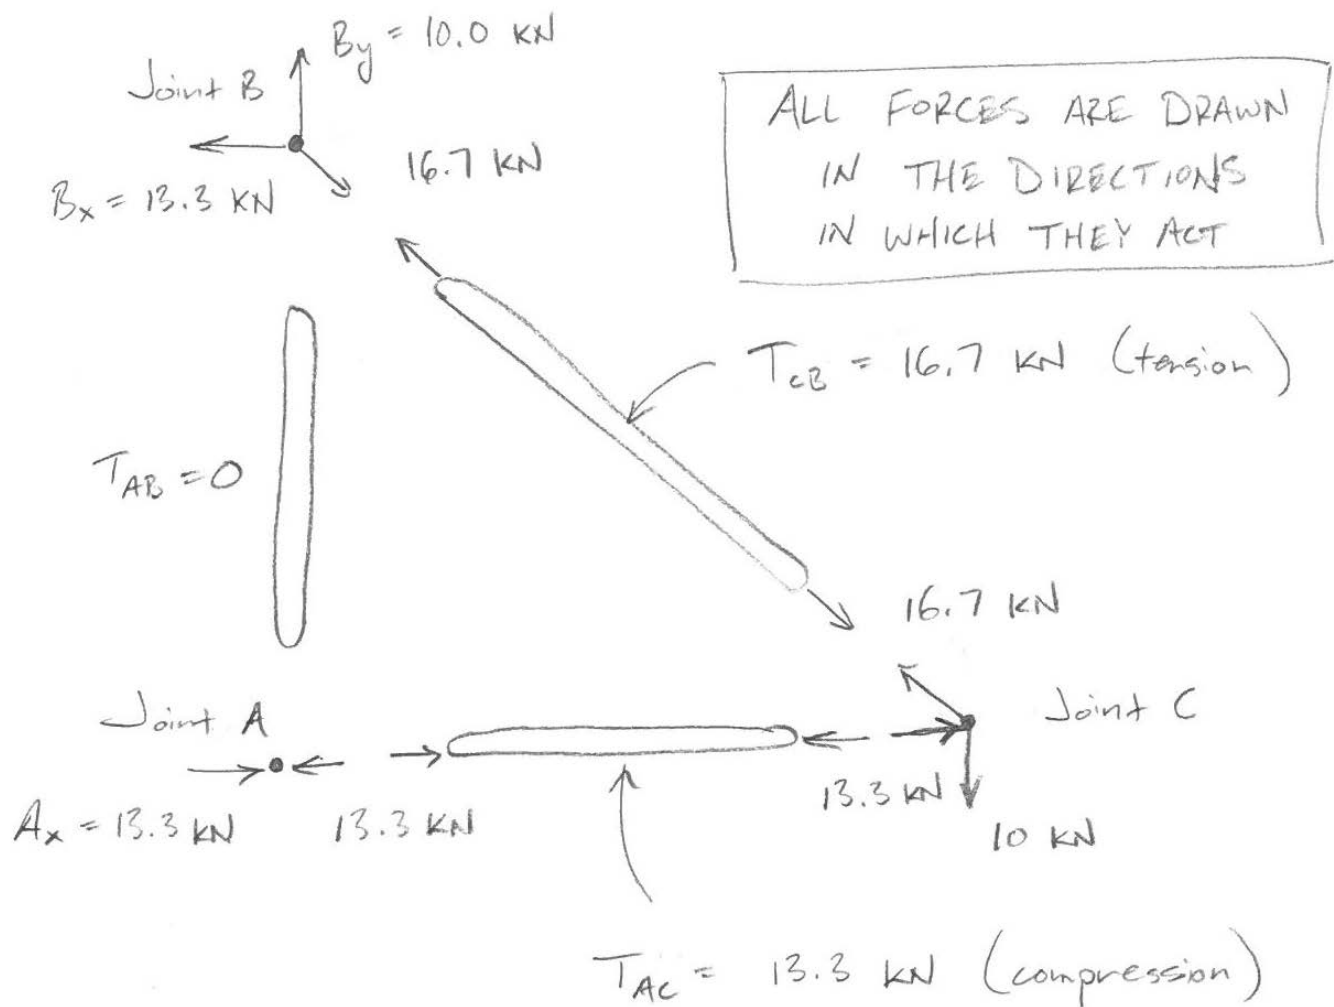 By = 10.0 kN
Joint B
16.7 kN
Bx = 13.3 kN
ALL FORCES ARE DRAWN
IN THE DIRECTIONS
IN WHICH THEY ACT
TCB = 16.7 kN (tension)
TAB = 0
16.7 kN
Joint A
Joint C
Ax = 13.3 kN
13.3 kN
13.3 kN
10 kN
TAC = 13.3 kN (compression)